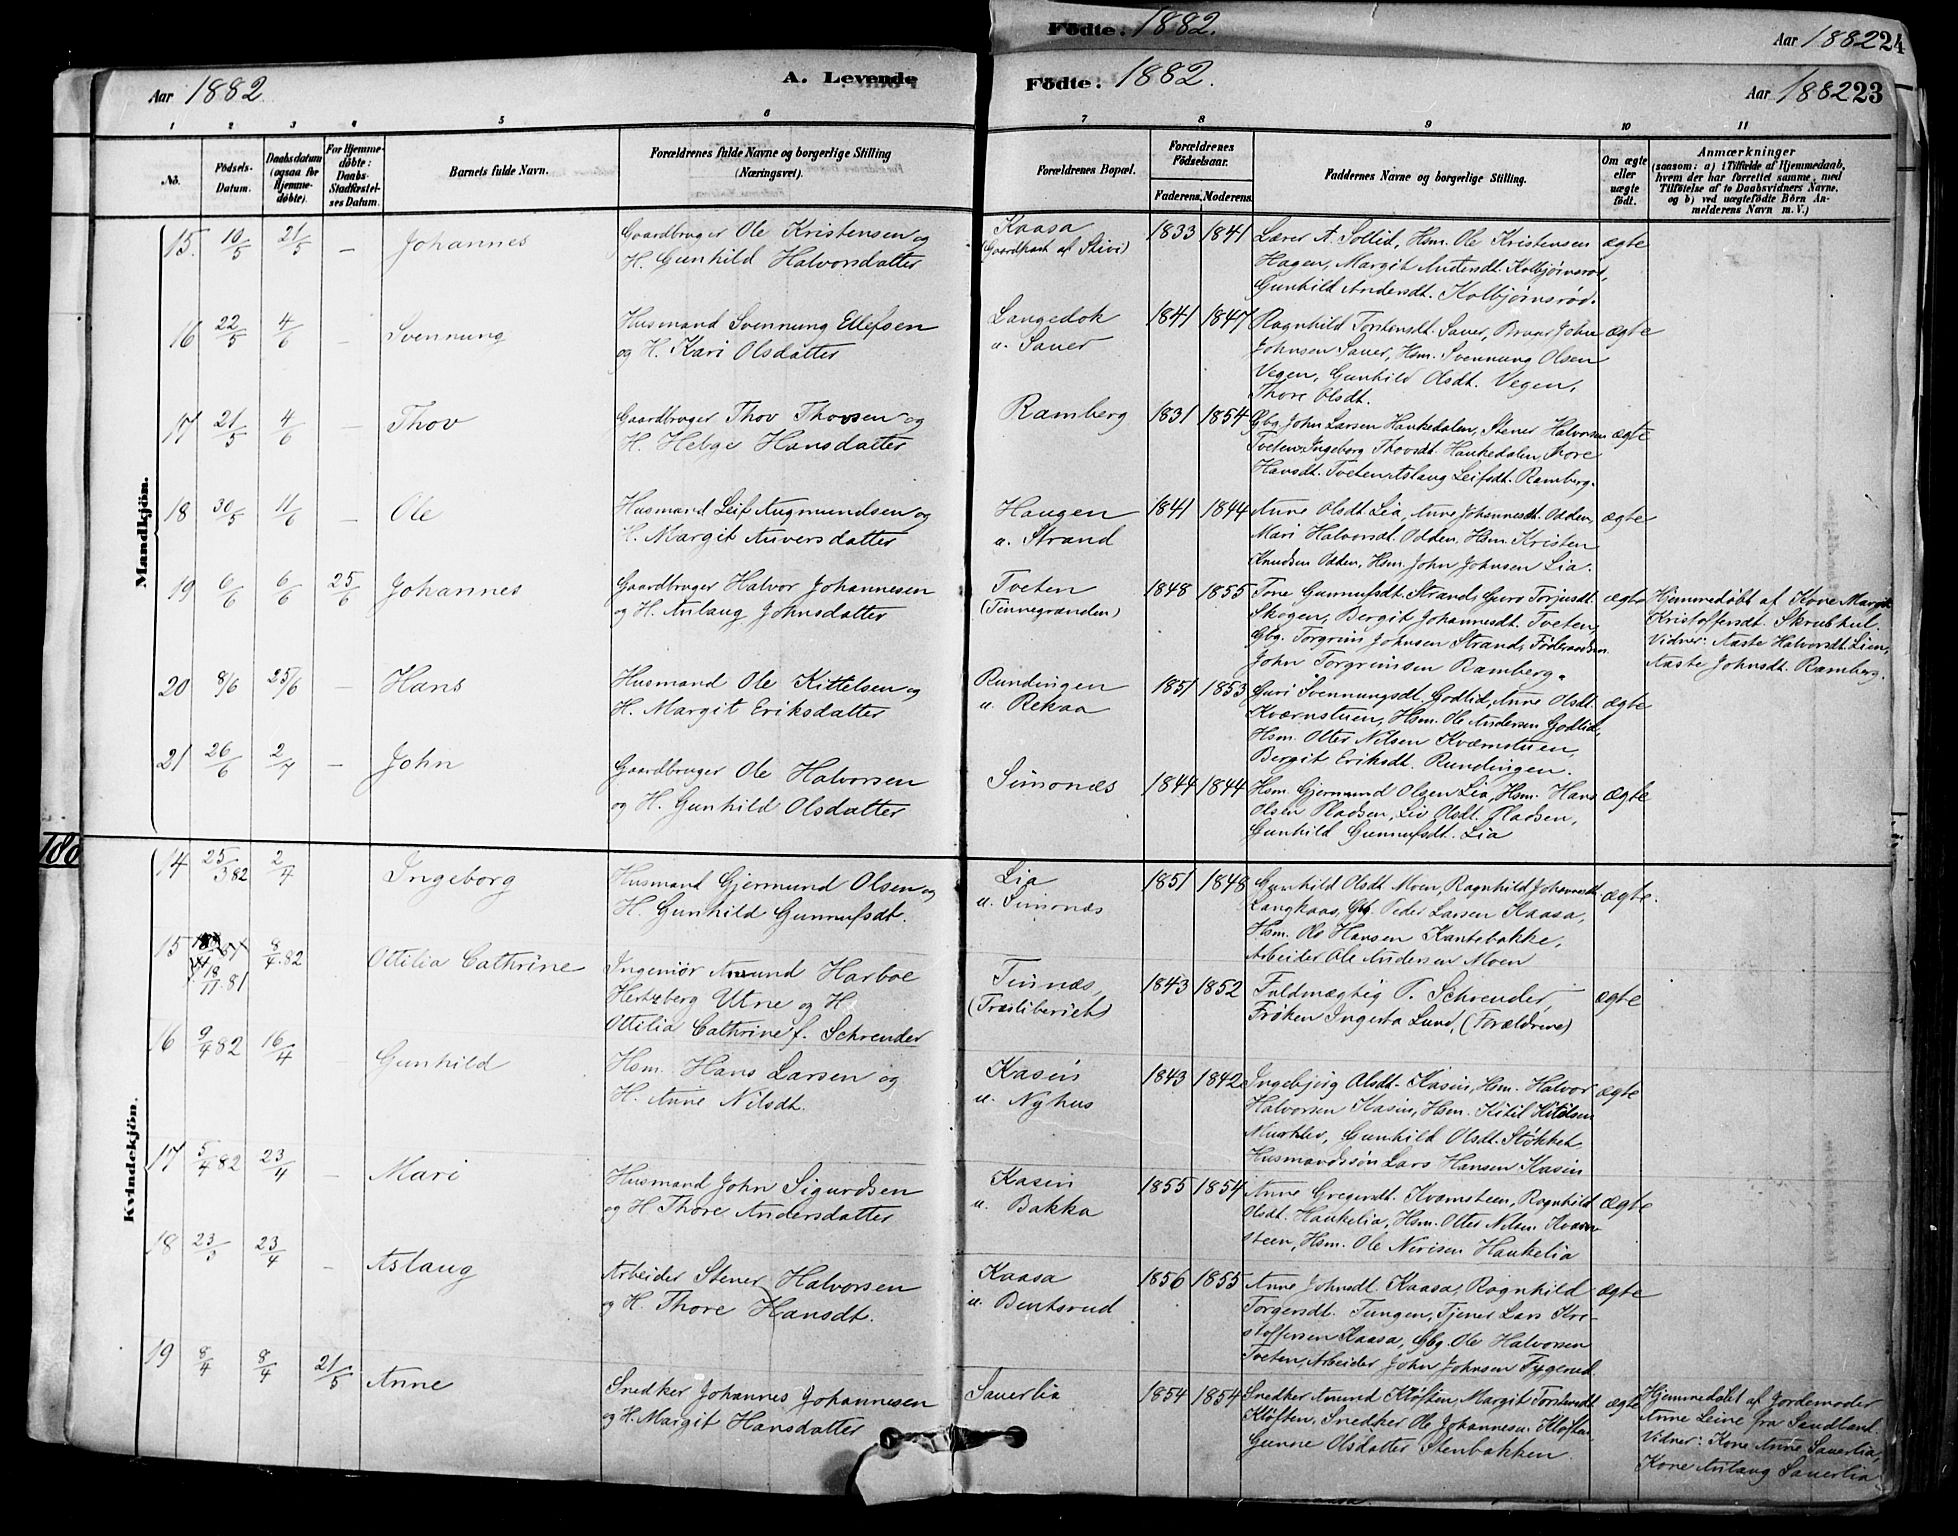 Födte. 1882.
Aar 1882 24
Aar 1882
A. Levende
Födte. 1882.
Aar 1882 23
1 2 3 4 5 6 7 8 9 10 11
No.
Födsels-Datum.
Daabsdatum (ogsaa for Hjemme-döbte).
For Hjemme-döbte: Daabs-Stadfæstel-ses Datum.
Barnets fulde Navn.
Forældrenes fulde Navne og borgerlige Stilling (Næringsvei).
Forældrenes Bopæl.
Forældrenes Födselsaar.
Faderens. Moderens.
Faddernes Navne og borgerlige Stilling.
Om ægte eller uægte födt.
Anmærkninger
(saasom: a) i Tilfælde af Hjemmedaab, hvem der har forrettet samme, med Tilföielse af to Daabsvidners Navne, og b) ved uægtefödte Börn An-melderens Navn m. V.)
Mandkjön.
15. 10/5 21/5 — Johannes
Gaardbruger Ole Kristensen og
H. Gunhild Halvorsdatter
Kaasa
(Gaardpart af Skivi)
1833 1841
Lærer A. Sollid, Hsm. Ole Kristensen
Hagen, Margit Andersdt. Kolbjørnsrød,
Gunhild Andersdt. Kolbjørnsrød.
ægte
16 22/5 4/6 — Svennung
Husmand Svennung Ellefsen
og H. Kari Olsdatter
Langedok
u. Sauer
1841 1847
Ragnhild Torstensdt. Sauer, Brur John
Johnsen Sauer, Hsm. Svennung Olsen
Vegen, Gunhild Olsdt. Vegen,
Thore Olsdt.
ægte
17 21/5 4/6 — Thov
Gaardbruger Thov Thovsen og
H. Helge Hansdatter
Ramberg
1831 1854
Gbg. John Larsen Haukedalen, Stener Halvorsen
Tveten, Ingeborg Thovsdt. Haukedalen, Thore
Hansdt. Tveten, Aslaug Leifsdt. Ramberg.
ægte
18 30/5 11/6 — Ole
Husmand Leif Augmundsen og
H. Margit Anversdatter
Haugen
u. Strand
1841 1844
Anne Olsdt. Lia, Anne Johannesdt. Odden,
Mari Halvorsdt. Odden, Hsm. Kristen
Knudsen Odden, Hsm. John Johnsen Lia.
ægte
19 6/6 6/6 25/6 Johannes
Gaardbruger Halvor Johannesen
og H. Aslaug Johnsdatter
Tveten
(Tinnegranden)
1848 1855
Tone Gunnufsdt. Strand, Guro Torjusdt.
Skogen, Bergit Johannesdt. Tveten,
Gbg. Torgrim Johnsen Strand, Föderaadsm.
John Torgrimsen Ramberg.
ægte
Hjemmedöbt af Kone Margit
Kristoffersdt. Skrubhul.
Vidner: Aaste Halvorsdt. Lien,
Aaste Johnsdt. Ramberg.
20 8/6 25/6 — Hans
Husmand Ole Kittelsen og
H. Margit Eriksdatter
Rundingen
u. Rekaa
1851 1853
Guri Svennungsdt. Godlid, Anne Olsdt.
Kværnstuen, Hsm. Ole Andersen Godlid,
Hsm. Otter Nilsen Kværnstuen,
Bergit Eriksdt. Rundingen.
ægte
21 26/6 2/7 — John
Gaardbruger Ole Halvorsen
og H. Gunhild Olsdatter
Simonæs
1844 1844
Hsm. Gjermund Olsen Lia, Hsm. Hans
Olsen Pladsen, Liv Olsdt. Pladsen,
Gunhild Gunnufsdt. Lia
ægte
188
Kvindekjön.
14 25/3 82 2/4 Ingeborg
Husmand Gjermund Olsen og
H. Gunhild Gunnufsdt.
Lia
u. Simonæs
1851 1848
Gunhild Olsdt. Moen, Ragnhild Johannesdt.
Langkaas, Gbg. Peder Larsen Kaasa,
Hsm. Ole Hansen Kantebakke,
Arbeider Ole Andersen Moen
ægte.
15 18/11 81 8/4 82 Ottilia Cathrine
Ingeniør Amund Harboe
Hertzberg Utne og H.
Ottilia Cathrine f. Schreuder
Tinnæs,
1843 1852
Fuldmægtig P. Schreuder,
Frøken Ingerta Lund, (Forældrene)
ægte
16 9/4 82 16/4 Gunhild
Hsm. Hans Larsen og
H. Anne Nilsdt.
Kasin
u. Nyhus
1843 1842
Ingebjørg Olsdt. Kasin, Hsm. Halvor
Halvorsen Kasin, Hsm. Kitil Kitilsen
Gunhild Olsdt. Støkket
Husmandssön Lars Hansen Kasin
ægte
17 5/4 82 23/4 — Mari
Husmand John Sigurdsen
og H. Thore Andersdatter
Kasin
u. Bakka
1855 1854
Anne Gregersdt. Kværnsteen, Ragnhild
Olsdt. Haukelia, Hsm. Otter Nilsen Kværn-
steen, Hsm. Ole Nirisen Haukelia
ægte
18 23/3 23/4 — Aslaug
Arbeider Stener Halvorsen
og H. Thore Hansdt.
Kaasa
u. Bentsrud
1856 1855
Anne Johnsdt. Kaasa, Ragnhild
Torgersdt. Tungen, Tjener Lars Kri-
stoffersen Kaasa, Gbg. Ole Halvorsen
Tveten, Arbeider John Johnsen
ægte
19 8/4 8/4 21/5 Anne
Snedker Johannes Johannesen
og H. Margit Hansdatter
Sauerlia
1854 1854
Snedker Amund Kløften, Margit Torstensdt.
Kløften, Snedker Ole Johannesen Kløften
Gunne Olsdatter Stenbakken
ægte
Hjemmedøbt af Jordemoder
Anne Leine fra Sandland.
Vidner: Kone Anne Sauerlia,
Kone Aslaug Sauerlia